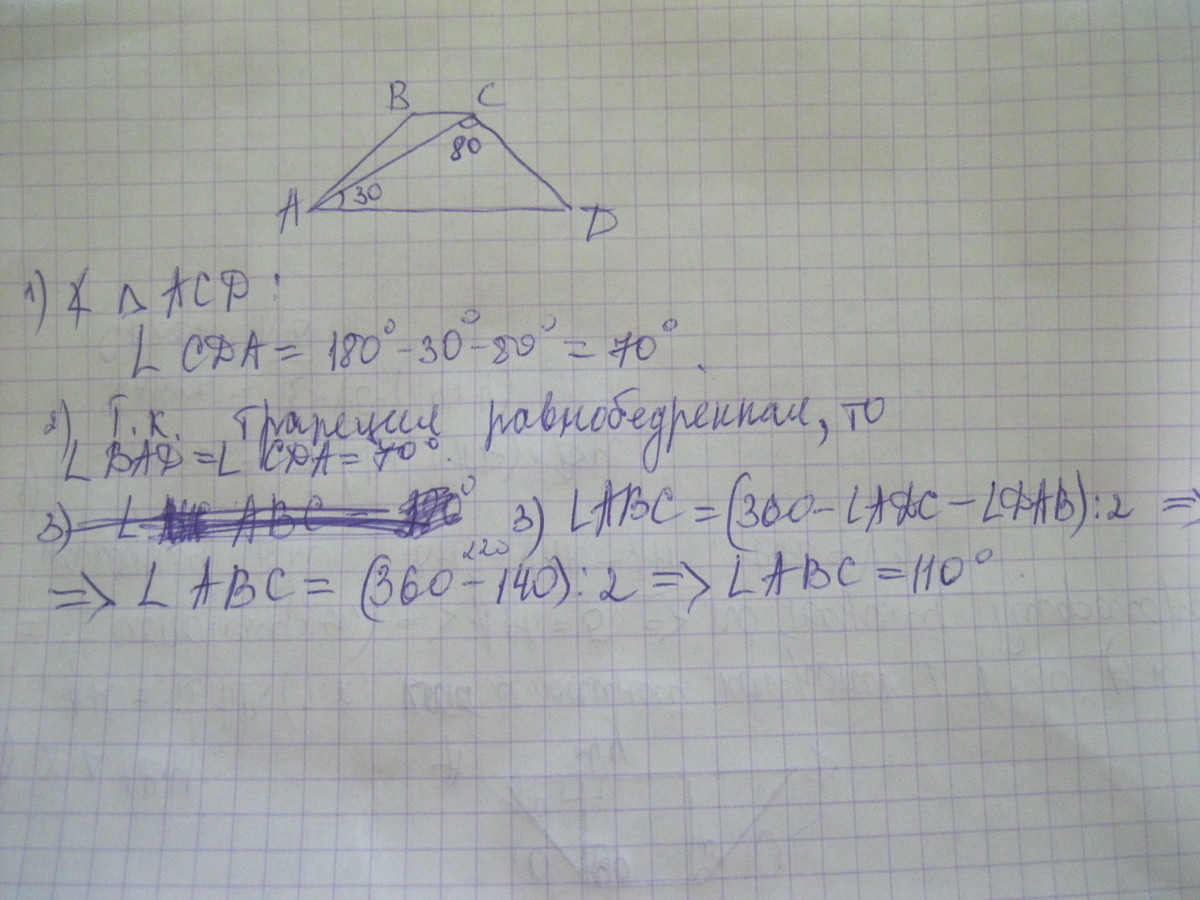 B C
80
30
A D
1) ∡ △ ACD:
∠ CDA = 180° - 30° - 80° = 70°.
2) Т.к. трапеция равнобедренная, то
∠ BAD = ∠ CDA = 70°.
3) ∠ ABC = ° 3) ∠ABC = (360 - ∠ADC - ∠DAB):2 =>
220
=> ∠ ABC = (360 - 140):2 => ∠ ABC = 110°.